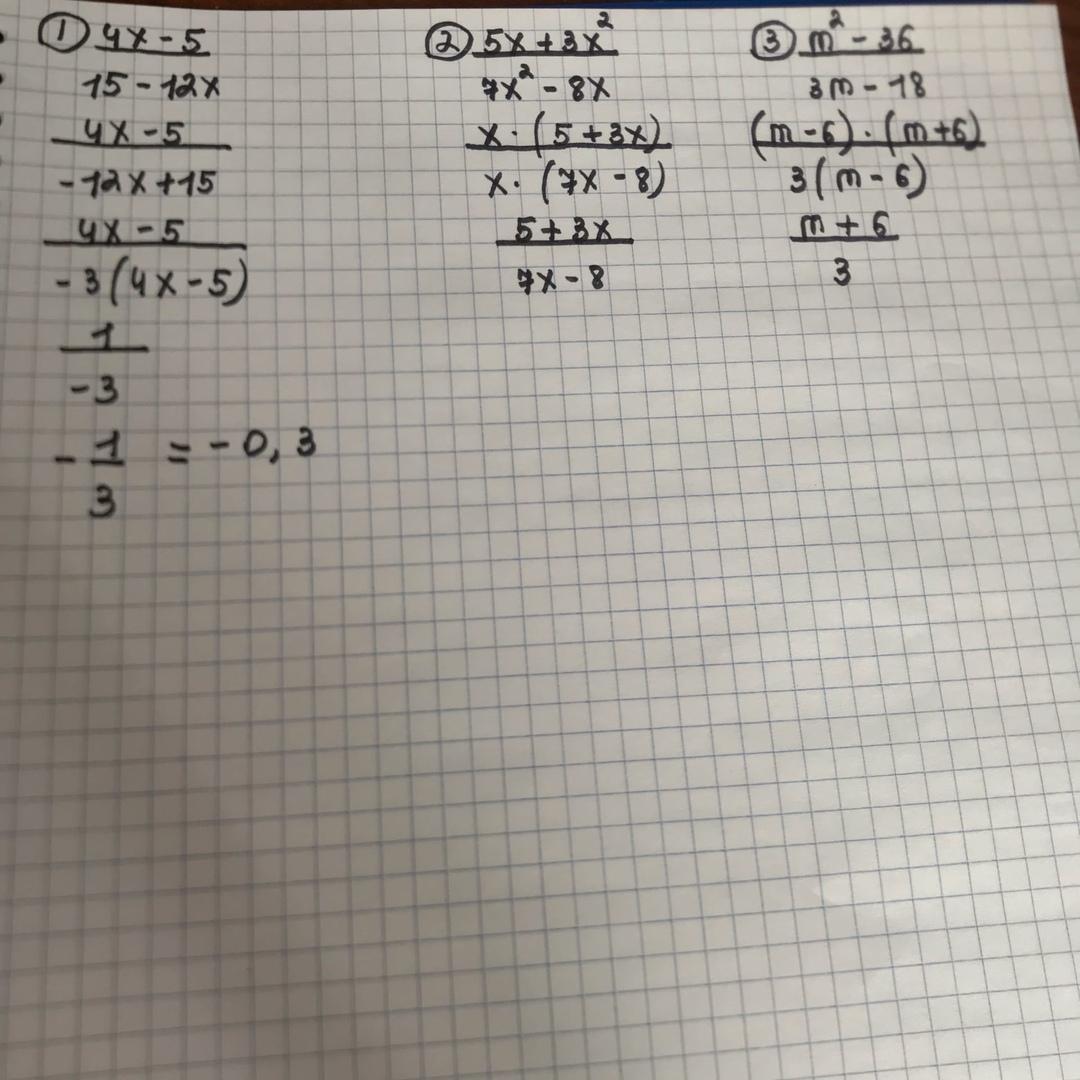 ① 4x - 5
15 - 12x
4x - 5
- 12x + 15
4x - 5
- 3(4x - 5)
1
- 3
- 1 = - 0,3
3
② 5x + 3x²
7x² - 8x
x · (5 + 3x)
x · (7x - 8)
5 + 3x
7x - 8
③ m² - 36
3m - 18
(m - 6) · (m + 6)
3(m - 6)
m + 6
3